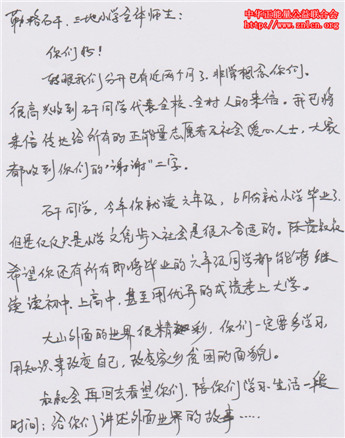 中华正能量公益联合会
www.znlcn.org
勒格石干、三地小学全体师生：
你们好！
转眼我们分开已有近两个月了，非常想念你们。
很高兴收到石干同学代表全校、全村人的来信。我已将
来信传达给所有的正能量志愿者及社会爱心人士，大家
都收到你们的“谢谢”二字。
石干同学，今年你就读六年级，6月份就小学毕业了，
但是仅仅只是小学文凭步入社会是很不合适的。陈贵叔叔
希望你还有所有即将毕业的六年级同学都能够继
续读初中、上高中，甚至用优异的成绩考上大学。
大山外面的世界很精彩，你们一定要多学习，
用知识来改变自己，改变家乡贫困的面貌。
叔叔会再回去看望你们，陪你们学习、生活一段
时间；给你们讲述外面世界的故事……